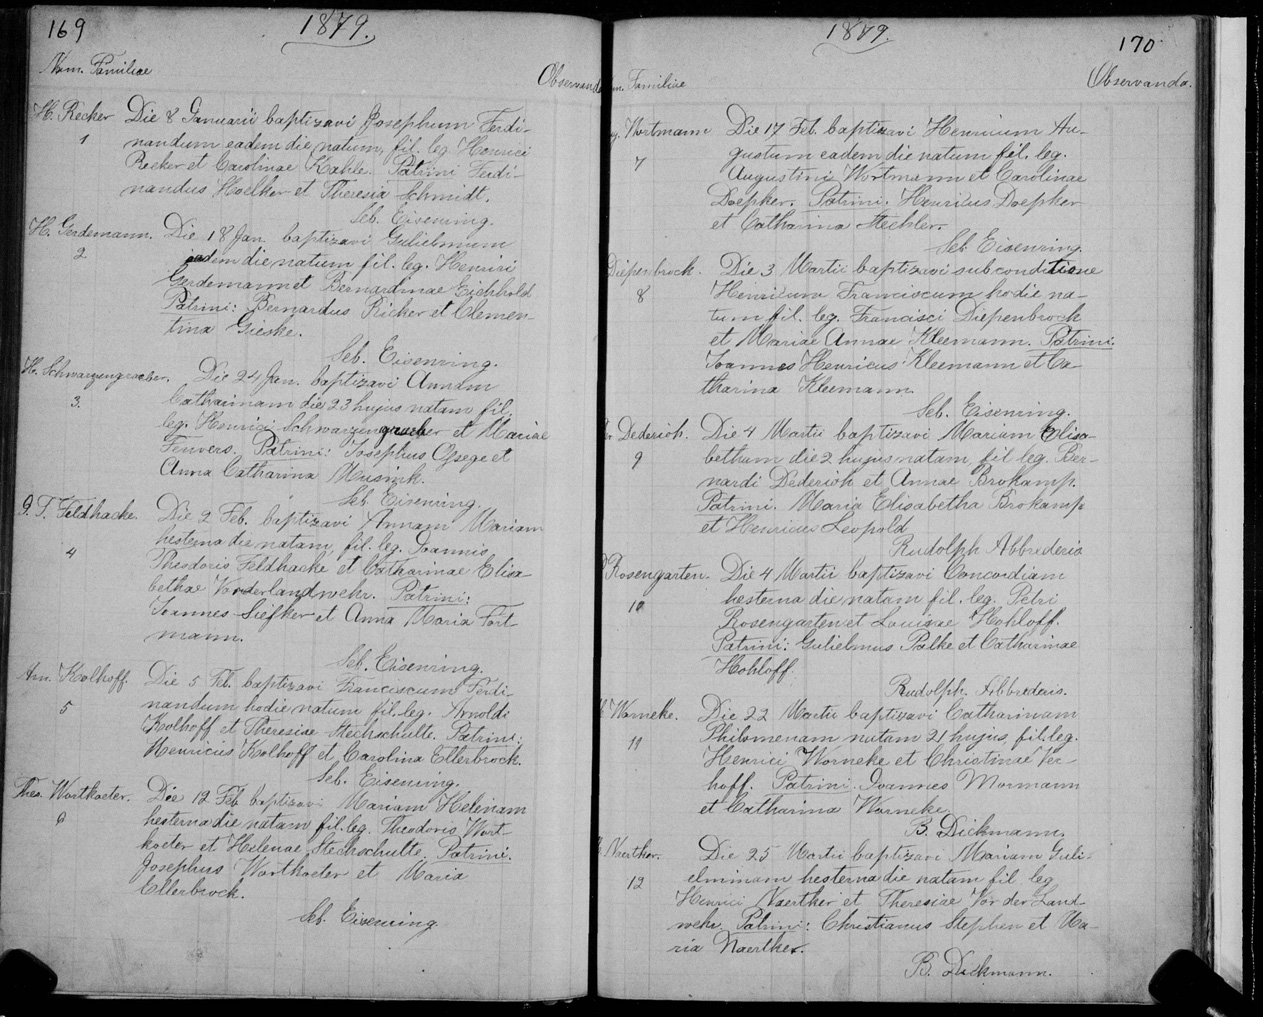 169
1879.
Nom. Familiae
Observanda
H. Recker Die 8 Januarii baptizavi Josephum Ferdi-
1
nandum eadem die natum, fil. leg. Henrici
Recker et Carolinae Kahle. Patrini Ferdi-
nandus Hoelker et Theresia Schmidt.
Seb. Eisenring.
H. Gerdemann. Die 18 Jan. baptizavi Gulielmum
2
eadem die natum fil. leg. Henrici
Gerdemann et Bernardinae Eichhold
Patrini: Bernardus Ricker et Clemen-
tina Gieske.
Seb. Eisenring.
H. Schwarzengraeber. Die 24 Jan. baptizavi Annam
3.
Catharinam die 23 hujus natam fil.
leg. Henrici Schwarzengraeber et Mariae
Fenvers. Patrini: Josephus Osege et
Anna Catharina Musink.
Seb. Eisenring.
J. T. Feldhacke. Die 2 Feb. baptizavi Annam Mariam
4
hesterna die natam, fil. leg. Joannis
Theodoris Feldhacke et Catharinae Elisa-
bethae Vorderlandwehr. Patrini:
Joannes Siefker et Anna Maria Fort-
mann.
Seb. Eisenring.
Arn. Kolhoff. Die 5 Feb. baptizavi Franciscum Ferdi-
5
nandum hodie natum fil. leg. Arnoldi
Kolhoff et Theresiae Stechschulte. Patrini:
Henricus Kolhoff et Carolina Ellerbrock.
Seb. Eisenring.
Theo. Wortkoeter. Die 12 Feb baptizavi Mariam Helenam
6
hesterna die natam fil. leg. Theodoris Wort-
koeter et Helenae Stechschulte. Patrini.
Josephus Wortkoeter et Maria
Ellerbrock.
Seb. Eisenring
1879.
170
Familiae
Observanda.
Wortmann Die 17 Feb. baptizavi Henricum Au-
7
gustum eadem die natum fil. leg.
Augustini Wortmann et Carolinae
Doepker. Patrini: Henricus Doepker
et Catharina Stechler.
Seb Eisenring.
Diepenbrock. Die 3 Martii baptizavi sub conditione
8
Henricum Franciscum hodie na-
tum fil. leg. Francisci Diepenbrock
et Mariae Annae Kleemann. Patrini:
Joannes Henricus Kleemann et Ca-
tharina Kleemann.
Seb. Eisenring.
Dederich. Die 4 Martii baptizavi Mariam Elisa-
9
betham die 2 hujus natam, fil. leg. Ber-
nardi Dederich et Annae Brokamp.
Patrini. Maria Elisabetha Brokamp
et Henricus Leopold
Rudolph Abbrederis
Rosengarten. Die 4 Martii baptizavi Concordiam
10
hesterna die natam fil. leg. Petri
Rosengarten et Louisae Hohloff.
Patrini: Gulielmus Palke et Catharinae
Hohloff.
Rudolph. Abbrederis.
Warneke. Die 22 Martii baptizavi Catharinam
11
Philomenam natam 21 hujus, fil. leg.
Henrici Worneke et Christinae Ver-
hoff. Patrini. Joannes Mormann
et Catharina Warneke.
B. Dickmann.
Naerther. Die 25 Martii baptizavi Mariam Guli-
12
elminam hesterna die natam fil leg
Henrici Naertker et Theresiae Vor der Land-
wehr. Patrini: Christianus Stephen et Ma-
ria Naertker.
B. Dickmann.